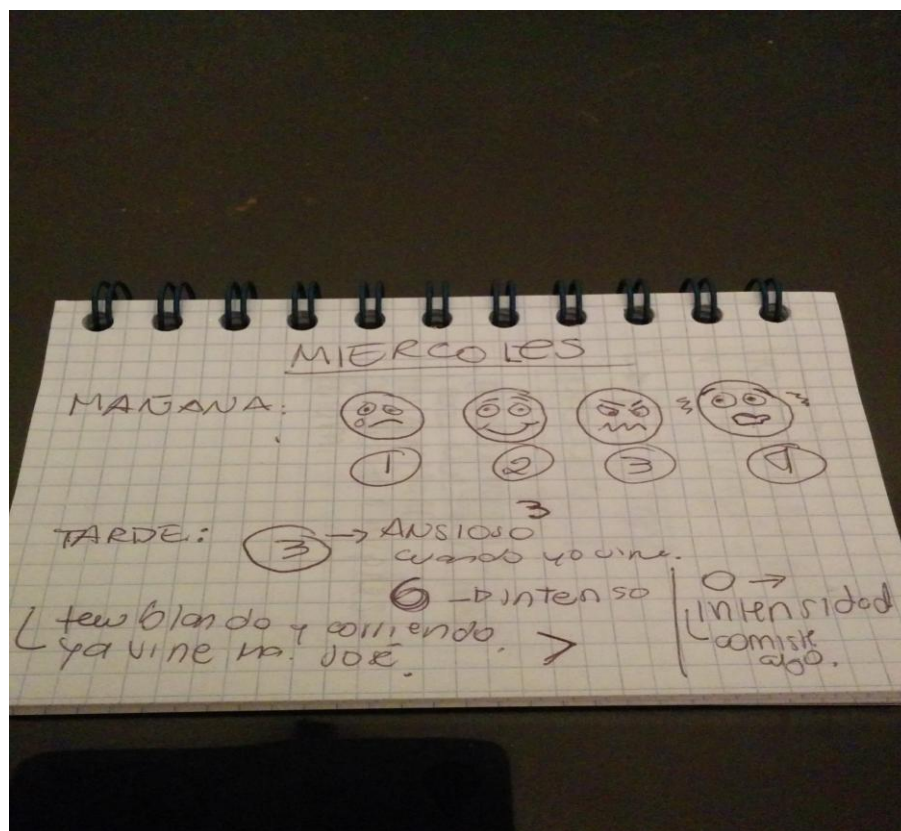 MIERCOLES
MAÑANA:
1 2 3 4
TARDE: 3 → ANSIOSO 3
cuando yo vine.
6 → intenso
temblando y corriendo.
ya vine ma. José.
>
0 →
intensidad
comiste
algo.